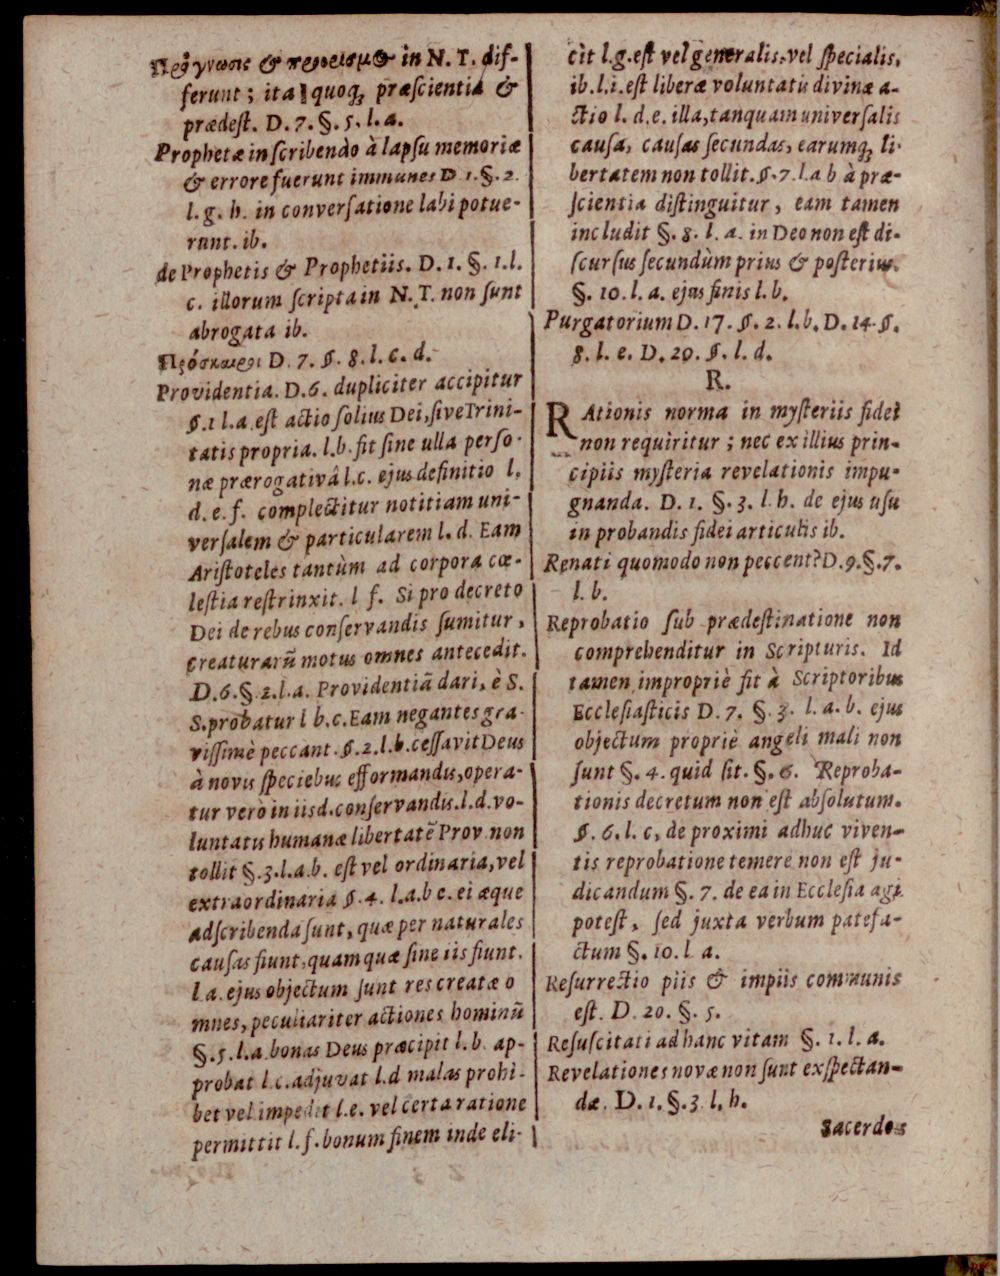 Πρόγνωσις & προορισμὸς in N. T. dif-
ferunt; ita quoq; præscientia &
prædest. D. 7. §. 5. l. a.
Prophetæ in scribendo à lapsu memoriæ
& errore fuerunt immunes D 1. §. 2.
l. g. h. in conversatione labi potue-
runt. ib.
de Prophetis & Prophetiis. D. 1. §. 1. l.
c. illorum scripta in N. T. non sunt
abrogata ib.
Πρόσκαιροι D. 7. §. 8. l. c. d.
Providentia. D. 6. dupliciter accipitur
§. 1 l. a. est actio solius Dei, sive Trini-
tatis propria. l. b. fit sine ulla perso-
næ prærogativâ l. c. ejus definitio l.
d. e. f. complectitur notitiam uni-
versalem & particularem l. d. Eam
Aristoteles tantùm ad corpora cæ-
lestia restrinxit. l f. Si pro decreto
Dei de rebus conservandis sumitur,
creaturarũ motus omnes antecedit.
D. 6. §. 2. l. a. Providentiã dari, è S.
S. probatur l b. c. Eam negantes gra-
vissimè peccant. §. 2. l. b. cessavit Deus
à novis speciebus efformandis, opera-
tur verò in iisd. conservandis. l. d. vo-
luntatis humanæ libertatẽ Prov. non
tollit §. 3. l. a. b. est vel ordinaria, vel
extraordinaria §. 4. l. a. b c. ei æque
adscribenda sunt, quæ per naturales
causas fiunt, quam quæ sine iis fiunt.
l a. ejus objectum sunt res creatæ o
mnes, peculiariter actiones hominũ
§. 5. l. a. bonas Deus præcipit l. b. ap-
probat l. c. adjuvat l. d malas prohi-
bet vel impedit l. e. vel certa ratione
permittit l. f. bonum finem inde eli-
cit l. g. est vel generalis, vel specialis,
ib. l. i. est liberæ voluntatis divinæ a-
ctio l. d. e. illa, tanquam universalis
causa, causas secundas, earumq; li-
bertatem non tollit. §. 7. l. a b à præ-
scientia distinguitur, eam tamen
includit §. 8. l. a. in Deo non est di-
scursus secundùm prius & posterius.
§. 10. l. a. ejus finis l. b.
Purgatorium D. 17. §. 2. l. b. D. 14. §.
8. l. e. D. 20. §. l. d.
R.
RAtionis norma in mysteriis fidei
non requiritur; nec ex illius prin-
cipiis mysteria revelationis impu-
gnanda. D. 1. §. 3. l. h. de ejus usu
in probandis fidei articulis ib.
Renati quomodo non peccent? D. 9. §. 7.
l. b.
Reprobatio sub prædestinatione non
comprehenditur in Scripturis. Id
tamen impropriè fit à Scriptoribus
Ecclesiasticis D. 7. §. 3. l. a. b. ejus
objectum propriè angeli mali non
sunt §. 4. quid sit. §. 6. Reproba-
tionis decretum non est absolutum.
§. 6. l. c, de proximi adhuc viven-
tis reprobatione temere non est ju-
dicandum §. 7. de ea in Ecclesia agi
potest, sed juxta verbum patefa-
ctum §. 10. l a.
Resurrectio piis & impiis communis
est. D. 20. §. 5.
Resuscitati ad hanc vitam §. 1. l. a.
Revelationes novæ non sunt exspectan-
dæ. D. 1. §. 3 l. h.
Sacerdos